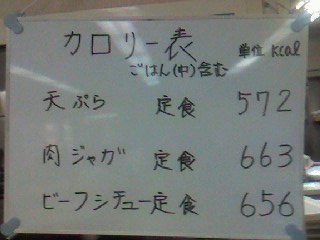 カロリー表 単位 Kcal
ごはん(中)含む
天ぷら 定食 572
肉ジャガ 定食 663
ビーフシチュー定食 656